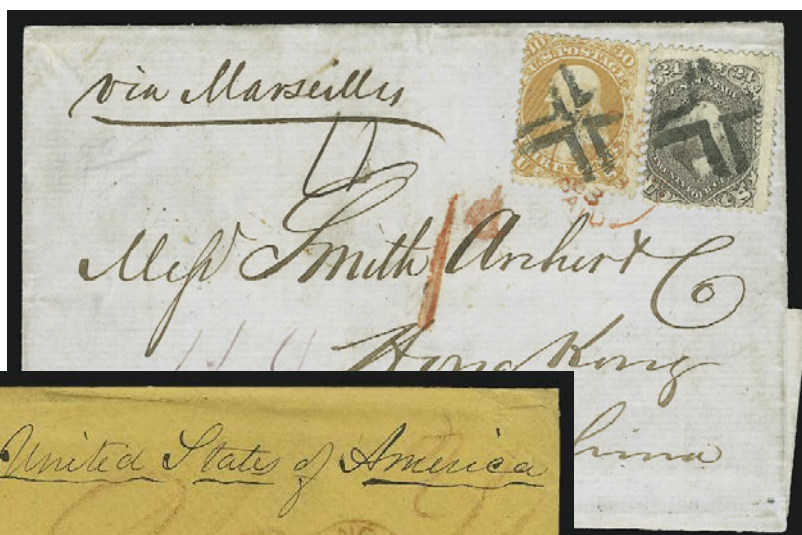 via Marseilles
30 30
U.S. POSTAGE
24 24
Messrs Smith Archer & Co
Hong Kong
China
United States of America